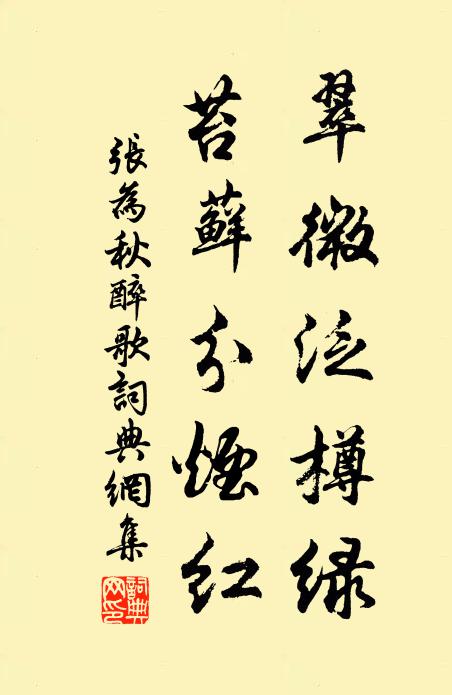 翠微泛樽绿
苔蘚分煙红
張為秋醉歌詞典網集
詞典网印